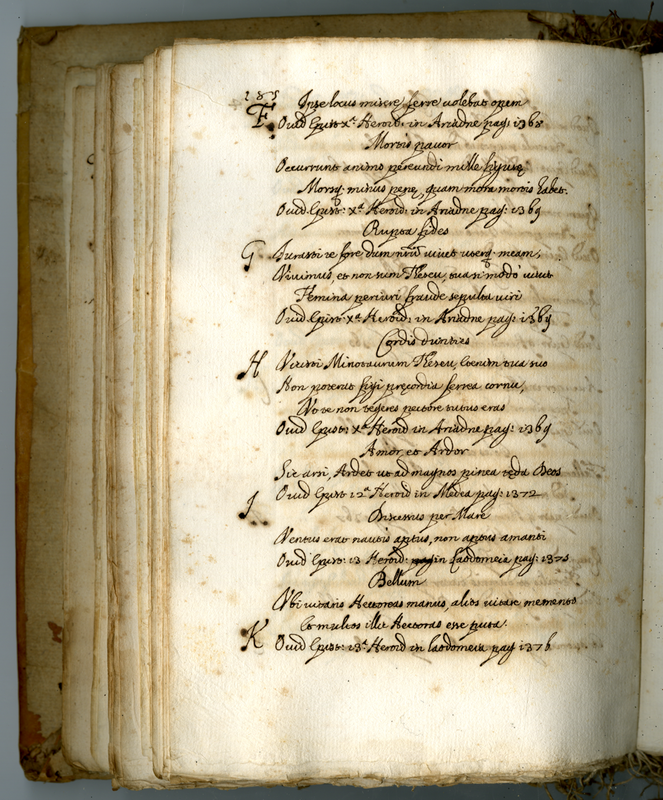 185
F Ipse locus misere ferre volebat opem
Ovid Epist: Xa. Heroid: in Ariadne pag: 1368
Mortis pavor
Occurrunt animo pereundi mille figurę
Morsq; minus penę, quam mora mortis habet.
Ovid Epist: Xa Heroid: in Ariadne pag: 1369
Rupta fides
G Iurasti te fore dum nrũ vivet uterq; meam,
Vivimus, et non sum Theseu, tua si modo vivit
Femina periuri fraude sepulta viri
Ovid Epist: Xa. Heroid: in Ariadne pag: 1369
Cordis durities
H Vicisti Minotaurum Theseu,
Non poterat figi pręcordia ferrea cornu,
Vt te non tegeres pectore tutus eras
Ovid Epist: Xa. Heroid in Ariadne pag: 1369
Amor, et Ardor
Sic arsi, Ardet ut ad magnos pinea tęda Deos
Ovid Epist 12a Heroid in Medea pag: 1372
I Discessus per Mare
Ventus erat nautis aptus, non aptus amanti
Ovid Epist: 13 Heroid: in Laodomeia pag: 1375
Bellum
Vbi vitaris Hectoras manus, alios vitare memento
Et multos illic Hectoras esse puta.
K Ovid Epist: 13a. Heroid in laodomeia pag 1376